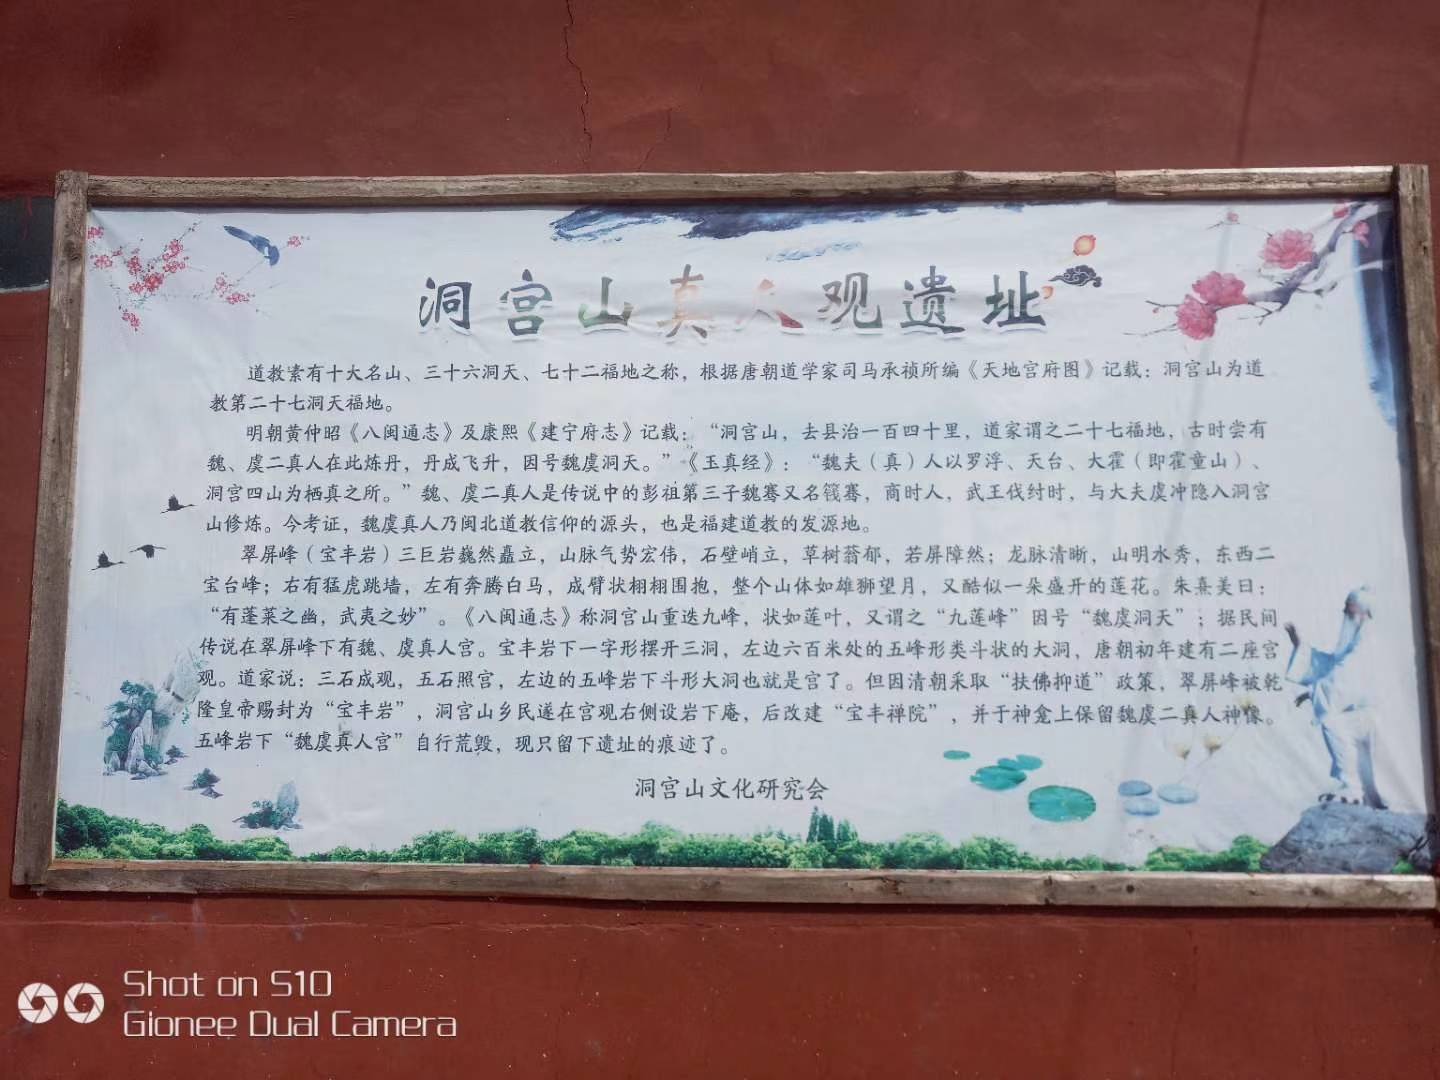 洞宫山真人观遗址
道教素有十大名山、三十六洞天、七十二福地之称，根据唐朝道学家司马承祯所编《天地宫府图》记载：洞宫山为道
教第二十七洞天福地。
明朝黄仲昭《八闽通志》及康熙《建宁府志》记载：“洞宫山，去县治一百四十里，道家谓之二十七福地，古时尝有
魏、虞二真人在此炼丹，丹成飞升，因号魏虞洞天。”《玉真经》：“魏夫（真）人以罗浮、天台、大霍（即霍童山）、
洞宫四山为栖真之所。”魏、虞二真人是传说中的彭祖第三子魏骞又名篯骞，商时人，武王伐纣时，与大夫虞冲隐入洞宫
山修炼。今考证，魏虞真人乃闽北道教信仰的源头，也是福建道教的发源地。
翠屏峰（宝丰岩）三巨岩巍然矗立，山脉气势宏伟，石壁峭立，草树蓊郁，若屏障然；龙脉清晰，山明水秀，东西二
宝台峰；右有猛虎跳墙，左有奔腾白马，成臂状栩栩围抱，整个山体如雄狮望月，又酷似一朵盛开的莲花。朱熹美曰：
“有蓬莱之幽，武夷之妙”。《八闽通志》称洞宫山重迭九峰，状如莲叶，又谓之“九莲峰”因号“魏虞洞天”；据民间
传说在翠屏峰下有魏、虞真人宫。宝丰岩下一字形摆开三洞，左边六百米处的五峰形类斗状的大洞，唐朝初年建有二座宫
观。道家说：三石成观，五石照宫，左边的五峰岩下斗形大洞也就是宫了。但因清朝采取“扶佛抑道”政策，翠屏峰被乾
隆皇帝赐封为“宝丰岩”，洞宫山乡民遂在宫观右侧设岩下庵，后改建“宝丰禅院”，并于神龛上保留魏虞二真人神像。
五峰岩下“魏虞真人宫”自行荒毁，现只留下遗址的痕迹了。
洞宫山文化研究会
Shot on S10
Gionee Dual Camera